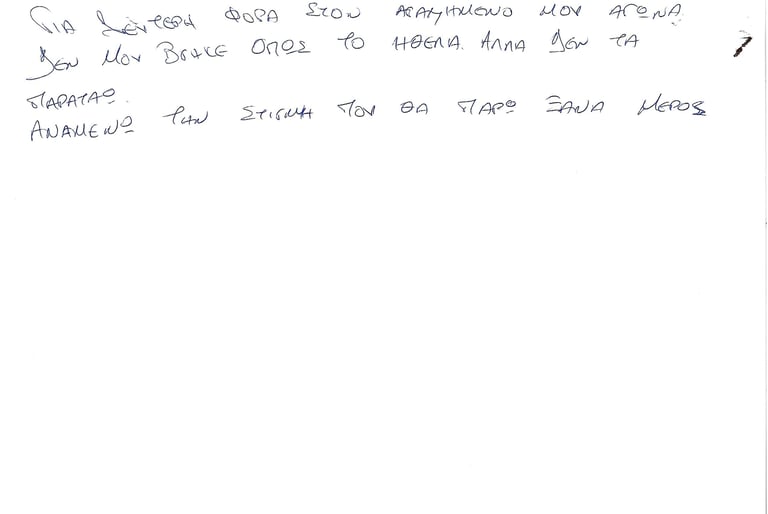 ΓΙΑ ΔΕΥΤΕΡΗ ΦΟΡΑ ΣΤΟΝ ΑΓΑΠΗΜΕΝΟ ΜΟΥ ΑΓΩΝΑ.
ΔΕΝ ΜΟΥ ΒΓΗΚΕ ΟΠΩΣ ΤΟ ΗΘΕΛΑ. ΑΛΛΑ ΔΕΝ ΤΑ
ΠΑΡΑΤΑΩ.
ΑΝΑΜΕΝΩ ΤΗΝ ΣΤΙΓΜΗ ΠΟΥ ΘΑ ΠΑΡΩ ΞΑΝΑ ΜΕΡΟΣ